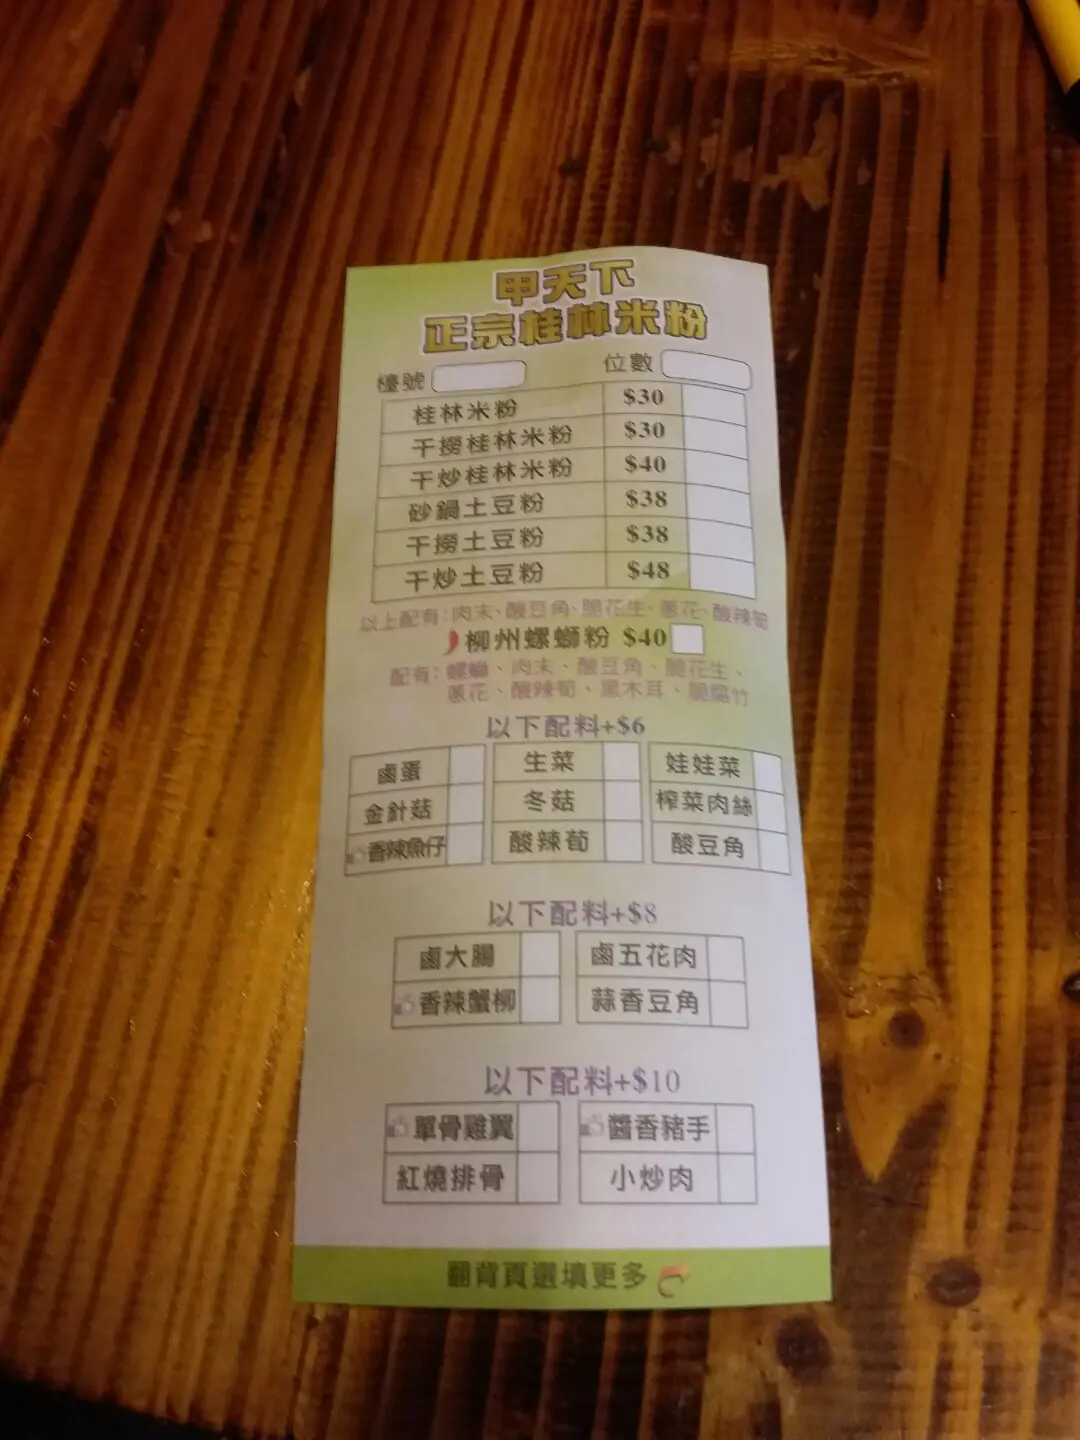 甲天下
正宗桂林米粉
檯號 位數
桂林米粉 $30
干撈桂林米粉 $30
干炒桂林米粉 $40
砂鍋土豆粉 $38
干撈土豆粉 $38
干炒土豆粉 $48
以上配有:肉末、酸豆角、脆花生、蔥花、酸辣筍
柳州螺螄粉 $40
配有:螺螄、肉末、酸豆角、脆花生、
蔥花、酸辣筍、黑木耳、脆腐竹
以下配料+$6
鹵蛋 生菜 娃娃菜
金針菇 冬菇 榨菜肉絲
香辣魚仔 酸辣筍 酸豆角
以下配料+$8
鹵大腸 鹵五花肉
香辣蟹柳 蒜香豆角
以下配料+$10
單骨雞翼 醬香豬手
紅燒排骨 小炒肉
翻背頁選填更多